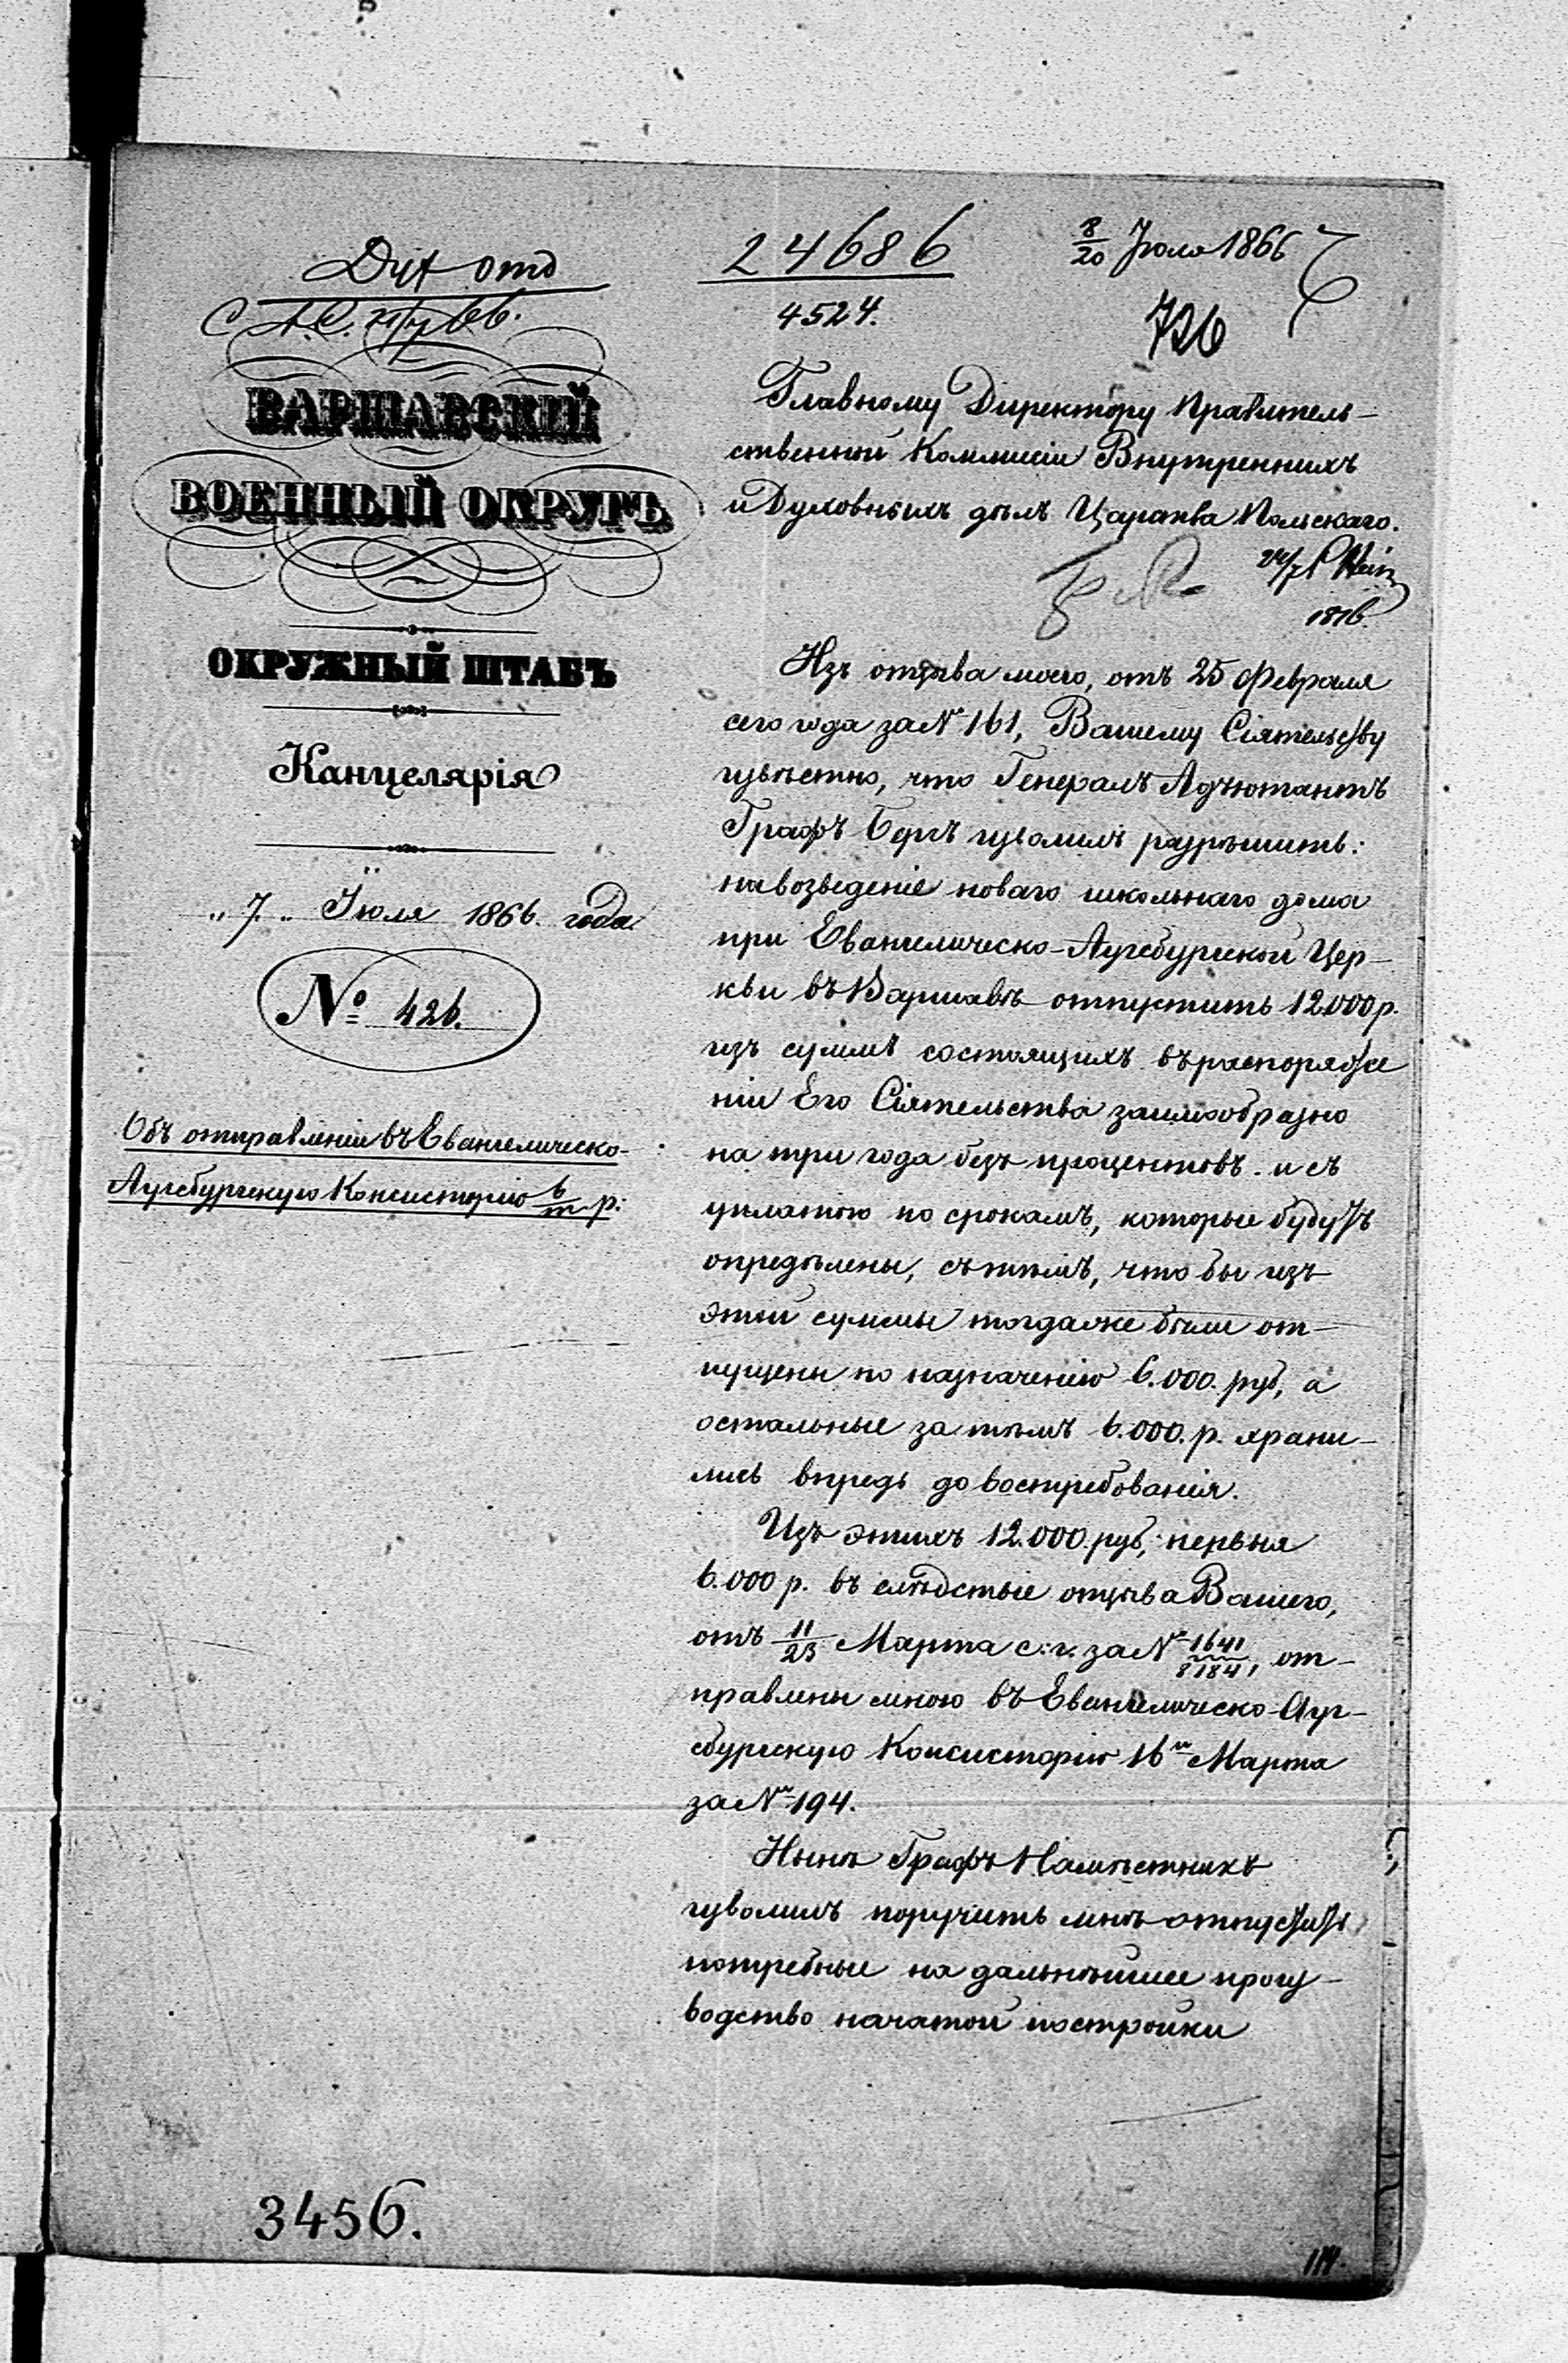 Дух отд
24686
4524.
8/20 Іюля 1866
726
ВАРШАВСКІЙ
ВОЕННЫЙ ОКРУГЪ
ОКРУЖНЫЙ ШТАБЪ
Канцелярія
„ 7. „ Іюля 1866. года
№ 426.
Объ отправленіи въ Евангелическо-
Аугсбургскую Консисторію 6/m р:
Главному Директору Правитель-
ственной Коммисіи Внутреннихъ
и Духовныхъ дѣлъ Царства Польскаго.
Изъ отзыва моего, отъ 25 Февраля
сего года за № 161, Вашему Сіятельству
извѣстно, что Генералъ Адъютантъ
Графъ Бергъ изволилъ разрѣшить:
на возведеніе новаго школьнаго дома
при Евангелическо-Аугсбургской Цер-
кви въ Варшавѣ отпустить 12.000 р.
изъ суммъ состоящихъ въ распоряже
ніи Его Сіятельства заимообразно
на три года безъ процентовъ и съ
уплатою по срокамъ, которые будутъ
опредѣлены, съ тѣмъ, что бы изъ
этой суммы тогда же были от-
пущены по назначенію 6.000. руб, а
остальные за тѣмъ 6.000. р. храни-
лись впредь до востребованія.
Изъ этихъ 12.000. руб, первыя
6.000 р. въ слѣдствіе отзыва Вашего,
отъ 11/23 Марта с. г. за № 1641/8184, от-
правлены мною въ Евангелическо-Ауг-
сбургскую Консисторію 16 го Марта
за № 194.
Нынѣ Графъ Намѣстникъ
изволилъ поручить мнѣ отпустить
потребные на дальнѣйшее произ-
водство начатой постройки
3456.
114.